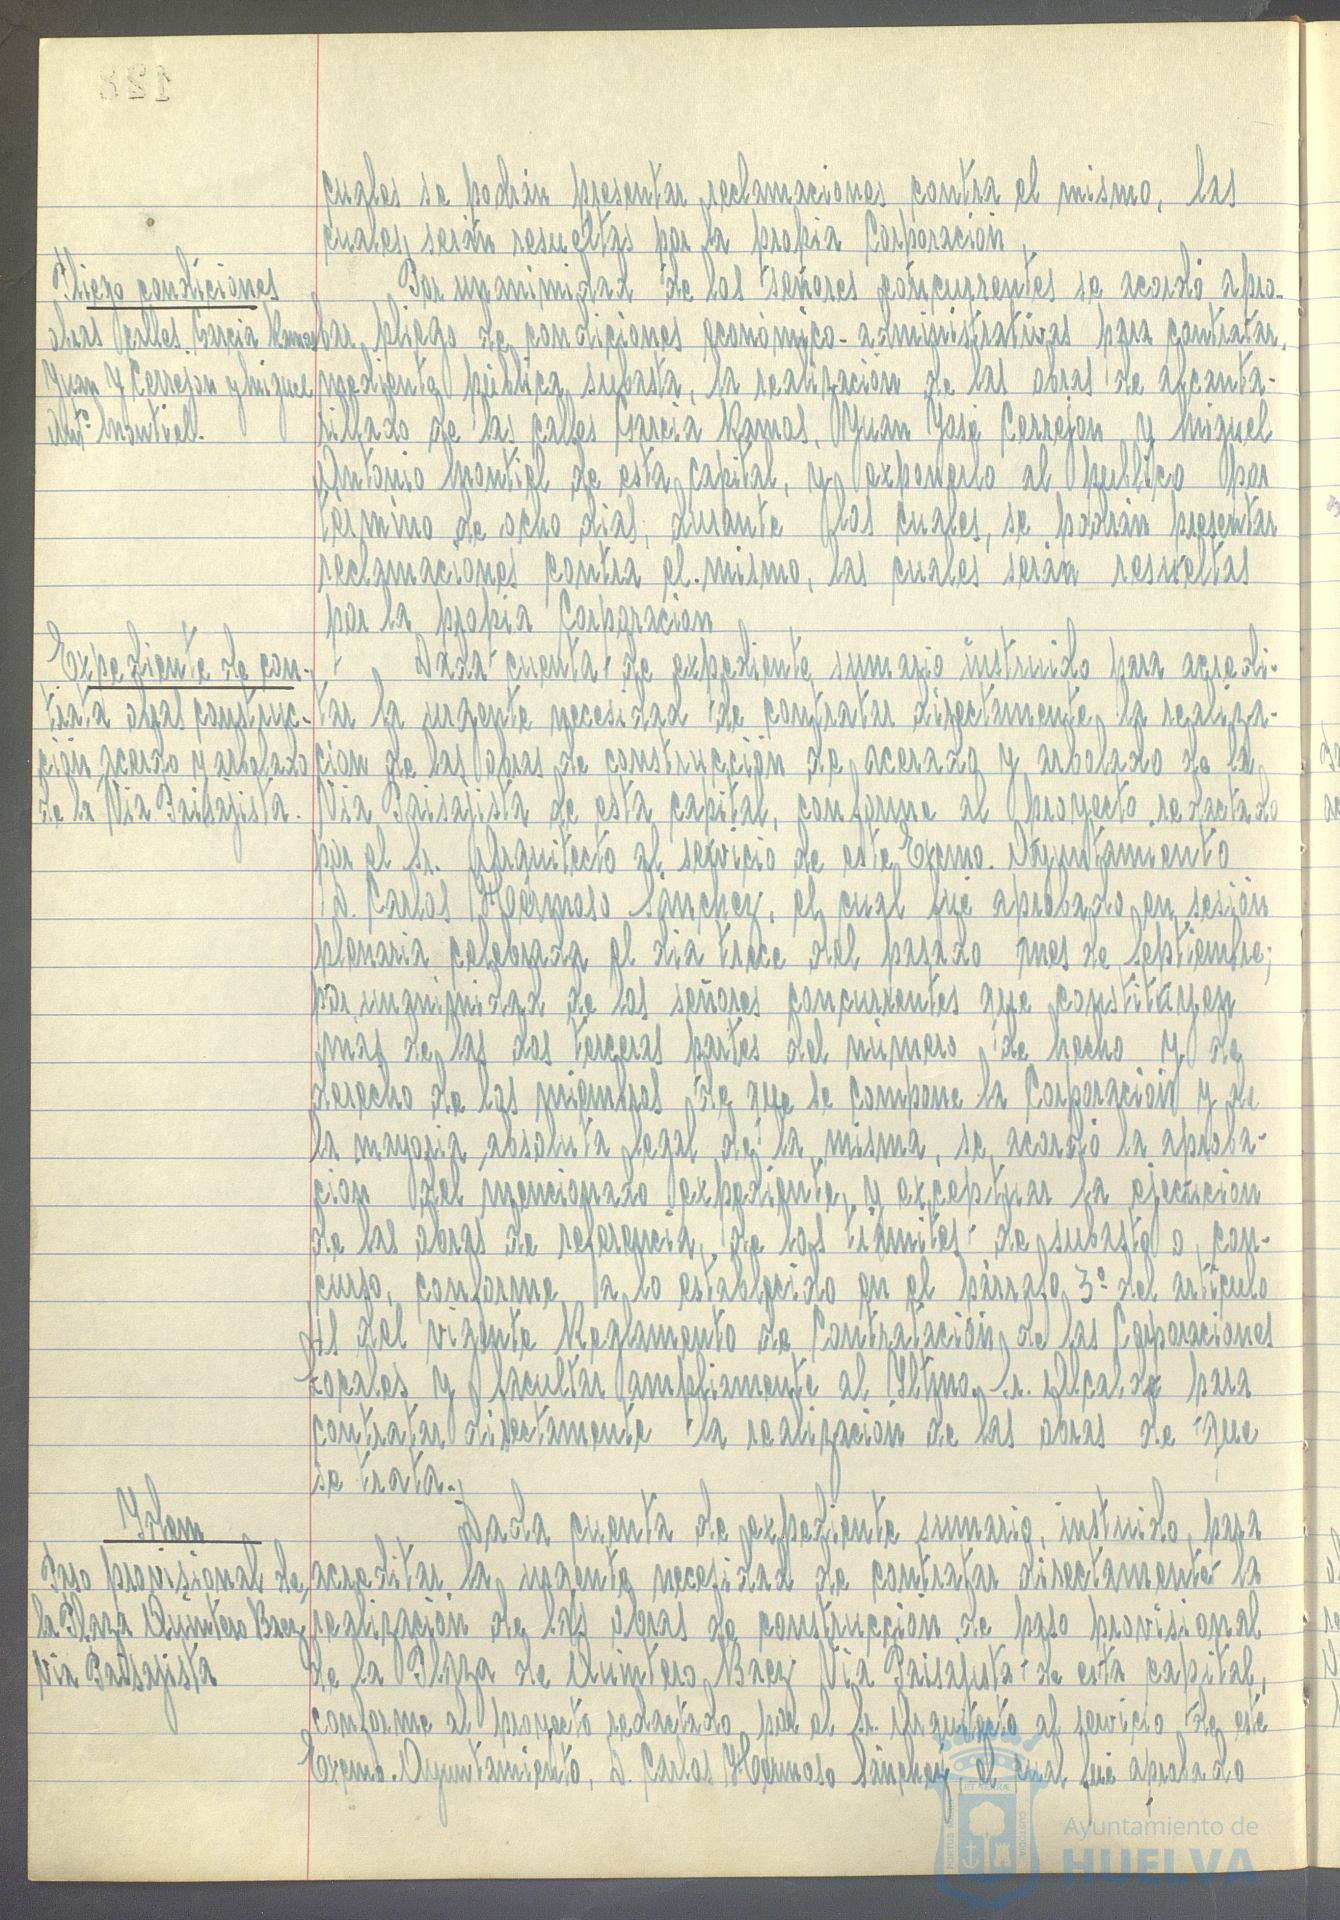 cuales se podrán presentar reclamaciones contra el mismo, las
cuales, serán resueltas por la propia Corporación.
Pliego condiciones
obras calles García Ramos
Juan J Cerrejon y Miguel
Antº Montiel.
Por unanimidad de los señores concurrentes se acordó apro-
bar pliego de condiciones económico-administrativas para contratar,
mediente pública subasta, la realización de las obras de alcanta-
rillado de las calles García Ramos, Juan José Cerrejon y Miguel
Antonio Montiel de esta capital, y exponerlo al publico por
término de ocho dias, durante los cuales, se podrán presentar
reclamaciones contra el mismo, las cuales serán resueltas
por la propia Corporación
Expediente de con-
trata obras construc-
ción acerado y arbolado
de la Via Paisajista.
Dada cuenta de expediente sumario instruido para acredi-
tar la urgente necesidad de contratar directamente la realiza-
cion de las obras de construcción de acerado y arbolado de la
Via Paisajista de esta capital, conforme al proyecto redactado
por el Sr. Arquitecto al servicio de este Excmo. Ayuntamiento
D. Carlos Hermoso Sánchez, el cual fué aprobado en sesión
plenaria celebrada el dia trece del pasado mes de Septiembre;
por unanimidad de los señores concurrentes que constituyen
mas de las dos terceras partes del número de hecho y de
derecho de los miembros de que se compone la Corporación y de
la mayoria absoluta legal de la misma, se acordó la aproba-
cion del mencionado expediente, y exceptuar la ejecucion
de las obras de referencia, de los trámites de subasta o con-
curso, conforme a lo establecido en el párrafo 3º del artículo
41 del vigente Reglamento de Contratación de las Corporaciones
Locales y facultar ampliamente al Iltmo. Sr. Alcalde para
contratar directamente la realización de las obras de que
se trata.
Idem
Paso provisional de
la Plaza Quintero Baez
Via Paisajista
Dada cuenta de expediente sumario, instruido, para
acreditar la urgente necesidad de contratar directamente la
realización de las obras de construcción de paso provisional
de la Plaza de Quintero Baez Via Paisajista de esta capital,
conforme al proyecto redactado por el Sr. Arquitecto al servicio de este
Excmo. Ayuntamiento, D. Carlos Hermoso Sánchez el cual fué aprobado
PORTUS MARIS
ET TERRAE
CUSTODIA
Ayuntamiento de
HUELVA